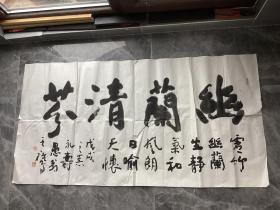 幽蘭清芬
虚竹
幽蘭
生靜
氣和
風朗
日喻
天懷
戊戌
永壽